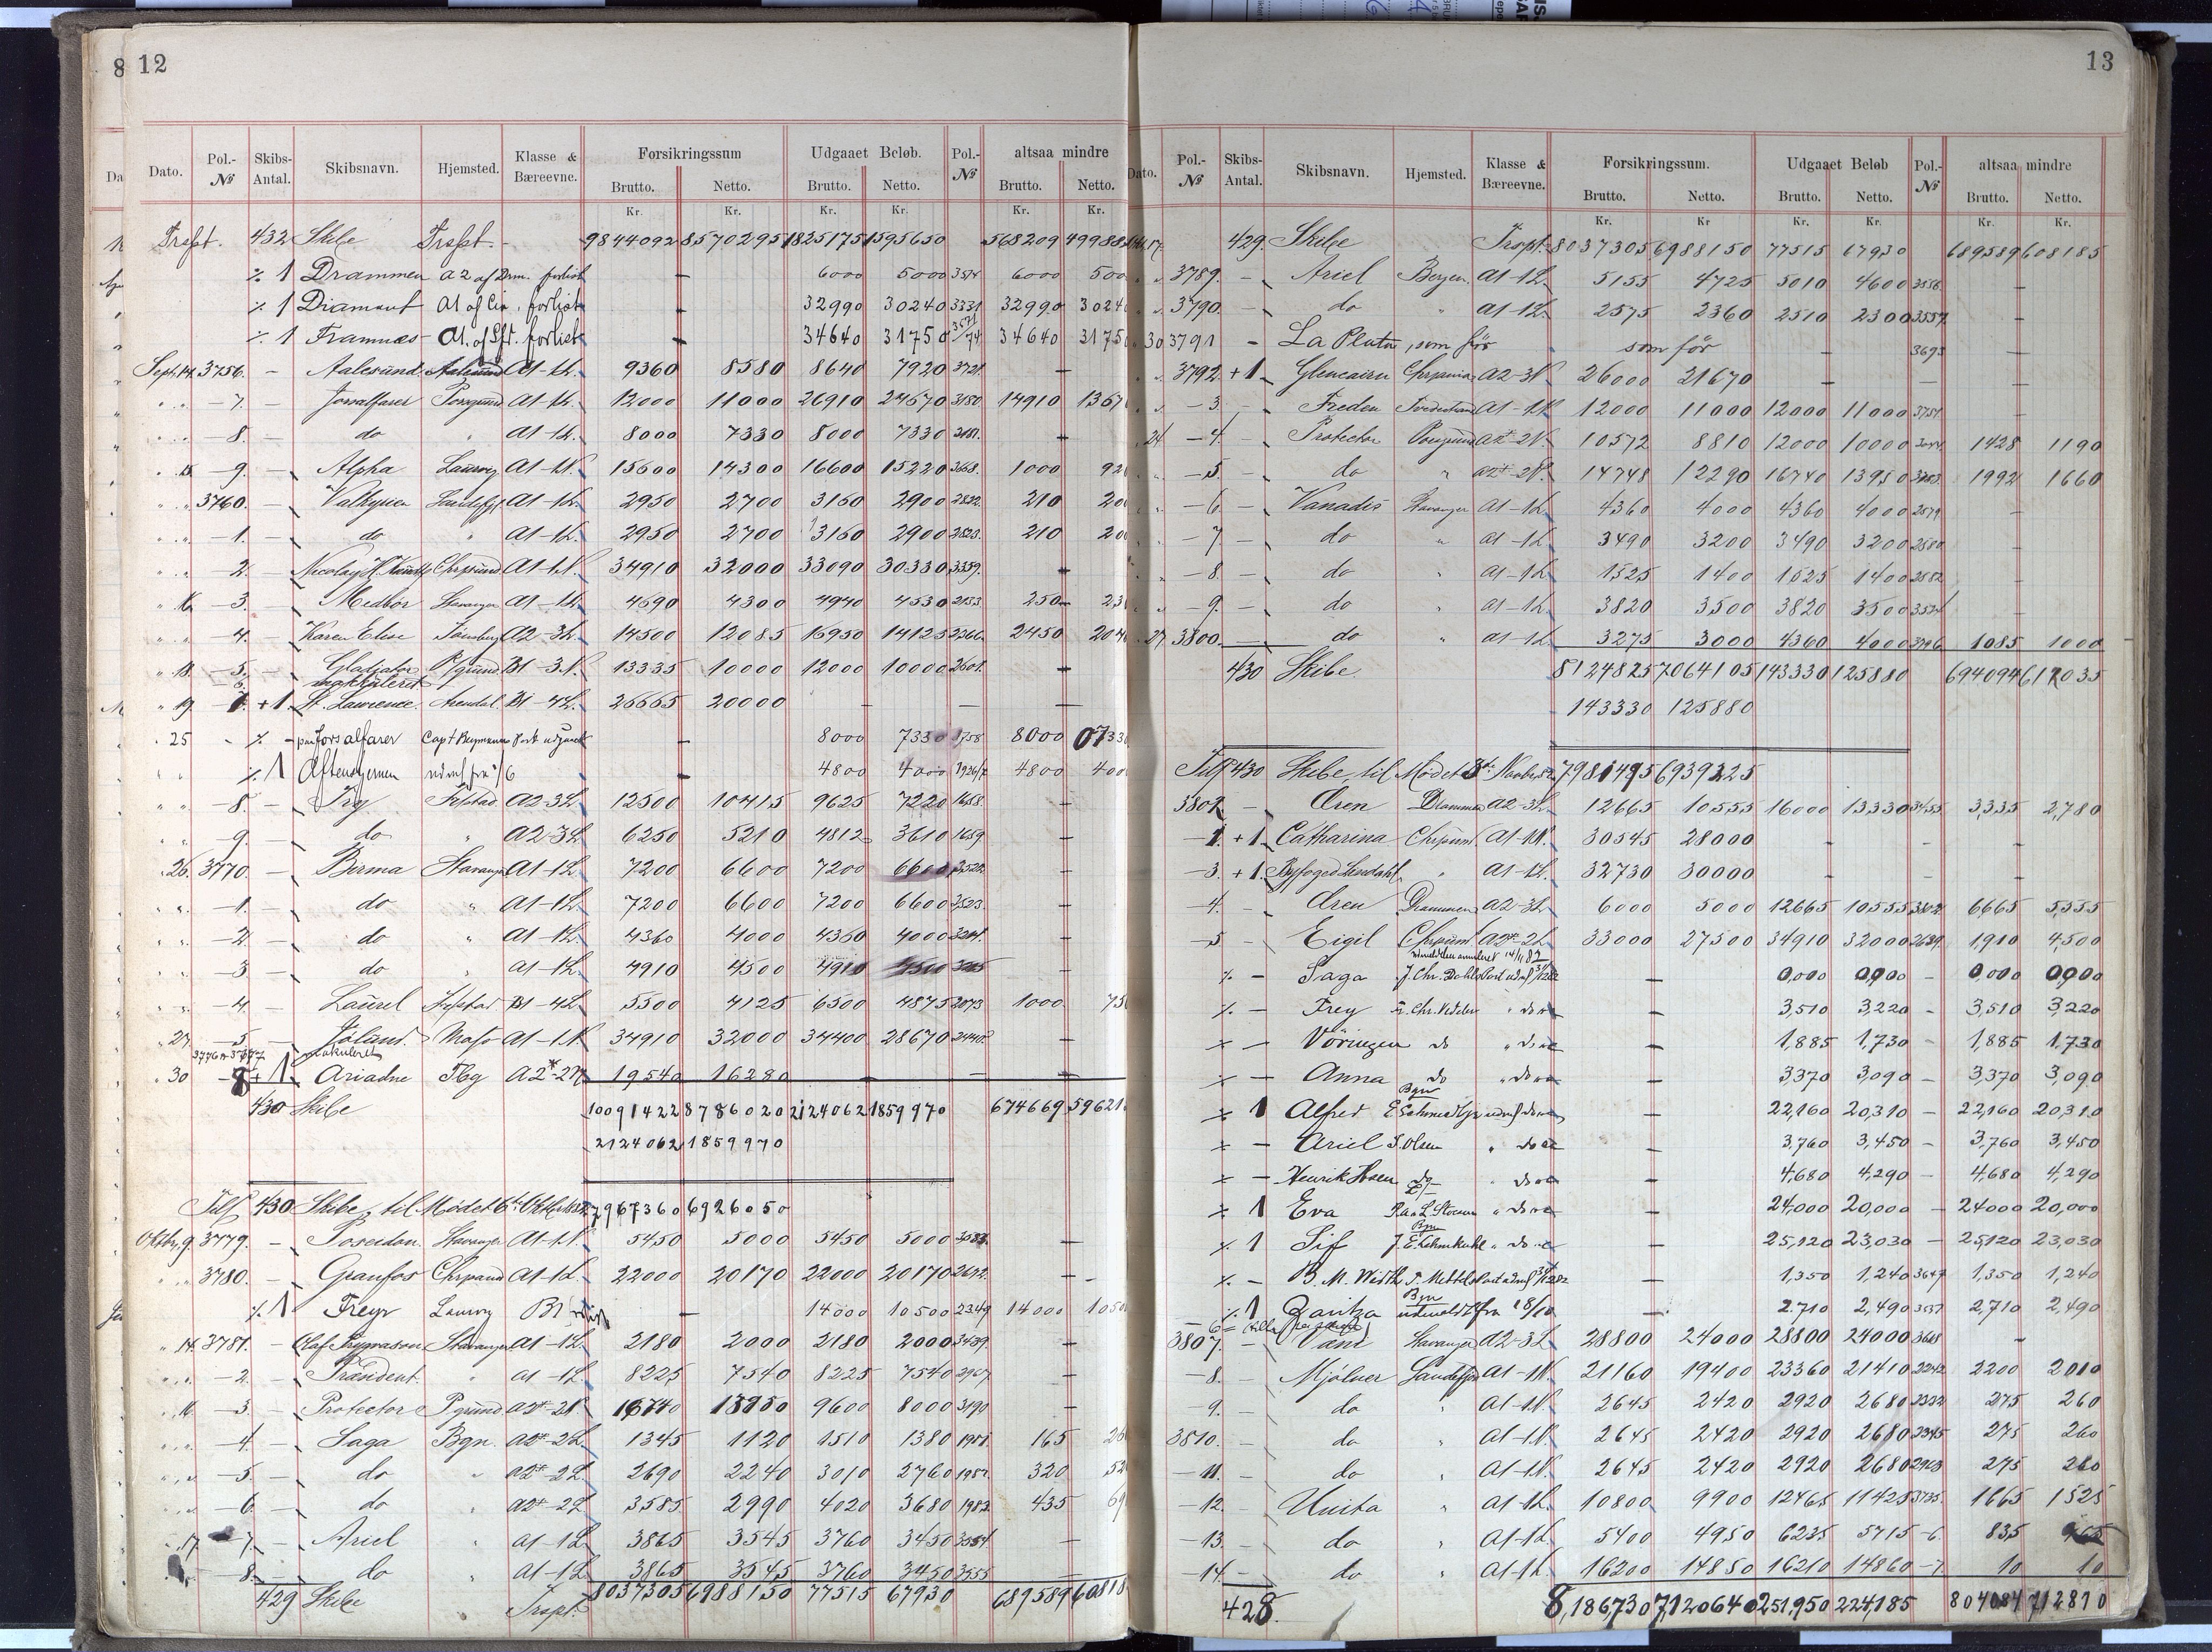 12
Dato. Pol.-№ Skibs-Antal. Skibsnavn. Hjemsted. Klasse & Bæreevne. Forsikringssum Brutto. Netto. Udgaaet Beløb. Brutto. Netto. Pol.-№ altsaa mindre Brutto. Netto.
Kr. Kr. Kr. Kr. Kr. Kr.
Trspt. 432 Skibe Trspt. - 9844092 8570295 1825175 1595650 568209
% 1 Drammen A2 af Drm. forlist - 6000 5000 3574 6000
% 1 Diamant A1 af Cia. forlist - 32990 30240 3331 32990
% 1 Framnæs A1. af Sft. forlist - 34640 31750 34640
Sept. 14. 3756. - Aalesund Aalesund A1-1L. 9360 8580 8640 7920 3721. -
" " -7. - Jorsalfarer Porsgrund A1-1L. 12000 11000 26910 24670 3180 14910
" " -8. - do " A1-1L. 8000 7330 8000 7330 3181. -
" 15 -9. - Alpha Laurvig A1-1N. 15600 14300 16600 15220 3668. 1000
" " 3760. - Valkyrien Sandefj. A1-1L. 2950 2700 3160 2900 2822. 210
" " -1. - do " A1-1L. 2950 2700 3160 2900 2823. 210
" " -2. - Nicolay H. Knudtz Chrsund A1-1N. 34910 32000 33090 30330 3339. -
" 16 -3. - Medbør Stavanger A1-1L. 4690 4300 4940 4530 2153. 250
" " -4. - Karen Elise Tønsberg A2-3L. 14500 12085 16950 14125 2366. 2450
" 18. -5. - Gladiator P/grund B1-3N. 13335 10000 12000 10000 2601. -
-6. makuleret
" 19 -7. +1 St. Lawrence. Arendal B1-4L. 26665 20000 - - -
" 25 - % - Jorsalfarer Capt Reymann Part udgaaet - 8000 7330 3758 8000
" " % 1 Aftenstjernen udm. fra 1/6 - 4800 4000 1926/7 4800
" " -8. - Try Frstad A2-3L. 12500 10415 9625 7220 1658. -
" " -9. - do " A2-3L. 6250 5210 4812 3610 1659. -
" 26. 3770. - Berma Stavanger A1-1L. 7200 6600 7200 6600 2522. -
" " -1. - do " A1-1L. 7200 6600 7200 6600 2523. -
" " -2. - do " A1-1L. 4360 4000 4360 4000 3204. -
" " -3 - do " A1-1L. 4910 4500 4910 4500 3205 -
" " -4. - Laurel Frstad B1-4L. 5500 4125 6500 4875 2073 1000
" 27 -5. - Jøland. Moss A1-1N. 34910 32000 34400 28670 2440. -
3776 & 3777 makuleret
" 30 -8 +1 Ariadne Tbg A2*-2N 19540 16280 - - -
430 Skibe 10091422 8786020 2124062 1859970 674669
2124062 1859970
Tils. 430 Skibe, til Mødet 6te Oktbr. 1882. 7967360 6926050
Oktbr. 9. 3779. - Poseidon. Stavanger A1-1N. 5450 5000 5450 5000 3083. -
" " 3780. - Granfos Chrsand A1-1L. 22000 20170 22000 20170 2642. -
% 1 Freyr Laurvig B1 forlist - 14000 10500 2349 14000
" 14. 3781. - Olaf Trygvason Stavanger A1-1L. 2180 2000 2180 2000 3439. -
" " -2. - Præsident. " A1-1L. 8225 7540 8225 7540 2967 -
" 16 -3. - Protector Pgrund A2*-2N. 16740 13950 9600 8000 3190 -
" " -4. - Saga Bgn. A2*-2L. 1345 1120 1510 1380 1951. 165
" " -5. - do " A2*-2L. 2690 2240 3010 2760 1952. 320
" " -6. - do " A2*-2L. 3585 2990 4020 3680 1983. 435
" 17 -7. - Ariel " A1-1L. 3865 3545 3760 3450 3554 -
-8. - do " A1-1L. 3865 3545 3760 3450 3555 -
429 Skibe Trspt. 8037305 6988150 77515 67930 689589
13
Dato. Pol.-№ Skibs-Antal. Skibsnavn. Hjemsted. Klasse & Bæreevne. Forsikringssum. Brutto. Netto. Udgaaet Beløb Brutto. Netto. Pol.-№ altsaa mindre Brutto. Netto.
Kr. Kr Kr. Kr. Kr. Kr.
429. Skibe Trspt. 8037305 6988150 77515 67930 689589 608185
3789. - Ariel Bergen A1-1L. 5155 4725 5010 4600 3556. -
3790. - do " A1-1L. 2575 2360 2510 2300 3557. -
3791 - La Plata, som før som før - 3693 -
3792. +1 Glencairn Chrsania A2-3N. 26000 21670 - - -
-3. - Freden Tvedestrand A1-1N. 12000 11000 12000 11000 3751. -
24 -4. - Protector Porsgrund A2*-2N. 10572 8810 12000 10000 1428 1190
-5. - do " A2*-2N. 14748 12290 16740 13950 3783. 1992 1660
-6. - Vanadis Stavanger A1-1L. 4360 4000 4360 4000 2579 -
-7. - do " A1-1L. 3490 3200 3490 3200 2580. -
-8. - do " A1-1L. 1525 1400 1525 1400 2582 -
-9. - do " A1-1L. 3820 3500 3820 3500 -
27. 3800. - do " A1-1L. 3275 3000 4360 4000 1085 1000
430 Skibe. 8124825 7064105 143330 125880 694094 612035
143330 125880
Tils 430 Skibe, til Mødet 3die Novbr. 82. 7981495 6939225
3801. - Øren Drammen A2-3L. 12665 10555 16000 13330 3455. 3,335 2,780
-2. +1. Catharina Chrsund. A1-1N. 30545 28000 - - -
-3. +1. Byfoged Lindahl " A1-1L. 32730 30000 - - -
-4. - Øren Drammen A2-3L. 6000 5000 12665 10,555 6665 5,555
-5 - Eigil Chrsund. A2*-2L. 33000 27500 34910 32000 2639. 1,910 4,500
udmeldelsen annulleret 14/11 82
% - Saga J. Chr. Dahls Part udm. - 0,000 0,000 - 0,000 0,000
% - Frey Fr. Chr. Vedeler " do - 3,510 3,220 - 3,510 3,220
% - Vöringen do " do - 1,885 1,730 - 1,885 1,730
% - Anna do " do - 3,370 3,090 - 3,370 3,090
% 1 Alfred Bgn - 22,160 20,310 - 22,160 20,310
% - Ariel S. Olsen " do - 3,760 3,450 - 3,760 3,450
% - Henrik Ibsen do " do - 4,680 4,290 - 4,680 4,290
% 1 Eva " do - 24,000 20,000 - 24000 20,000
% 1 Sif Bgn J. E. Lehmkuhl " do - 25,120 23,030 - 25,120 23,030
% - B. M. Width Part udm. - 1,350 1,240 3647 1,350 1,240
% 1 Zaritza Bgn udmeldt fra 18/10 - 2,710 2,490 2,710 2,490
3807. - Stavanger A2-3L. 28800 24000 28800 24000 3618 -
-8. - Mjølner Sandefjord A1-1N. 21160 19400 23360 21410 2242 2200 2010
-9. - do " A1-1N. 2645 2420 2920 2680 275 260
3810. - do " A1-1N. 2645 2420 2920 2680 2345 275 260
-11. - do " A1-1N. 2645 2420 2920 2680 275 260
-12. - Unita " A1-1L. 10800 9900 12465 11425 3735. 1665 1525
-13. - do " A1-1L. 5400 4950 6235 5715 -6. 835
-14. - do " A1-1L. 16200 14850 16210 14860 -7. 10 10
428. 8,186,730 7,120640 251,950 224,185 804084 712810